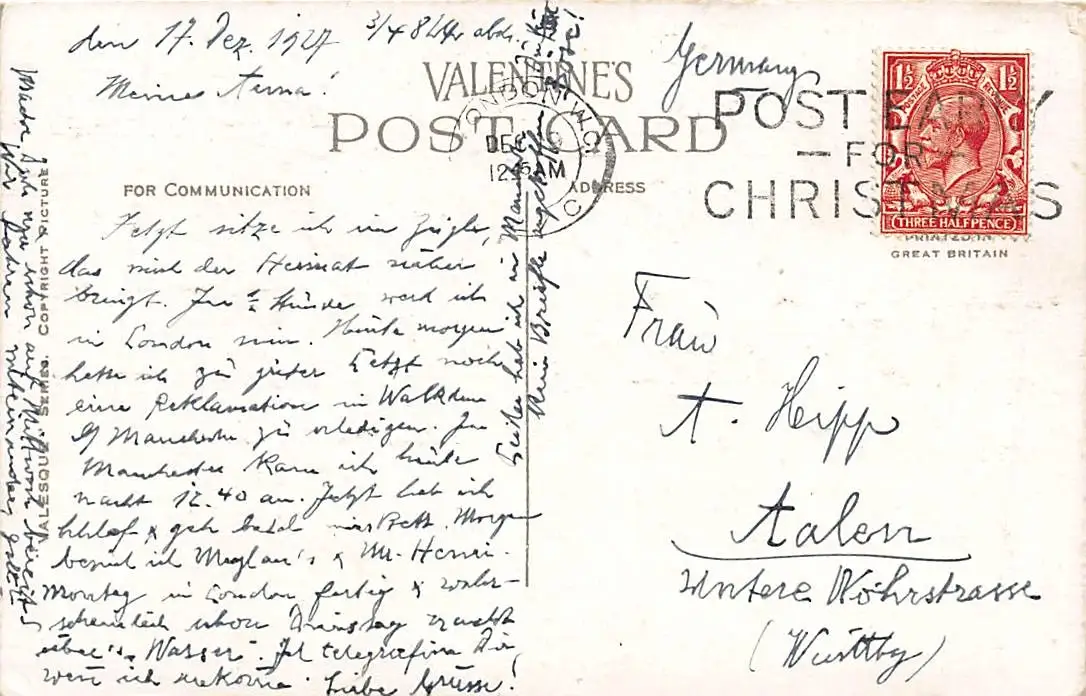 den 17. Dez. 1927 3/4 8 Uhr abds.
Meine Anna!
VALENTINE'S
POST CARD
FOR COMMUNICATION
ADDRESS
LONDON. W.C.
DEC
12 15 AM
POST EARLY
— FOR —
CHRISTMAS
1½ 1½
POSTAGE REVENUE
THREE HALFPENCE
PRINTED IN
GREAT BRITAIN
Germany
Jetzt sitze ich im Zügle,
das mich der Heimat näher
bringt. In ½ Stunde werd ich
in London sein. Heute morgen
hatte ich zu guter Letzt noch
eine Reklamation in Walkden
b/ Manchester zu erledigen. In
Manchester kam ich heute
nacht 12.40 an. Jetzt hab ich
Schlaf & geh bald ins Bett. Morgen
besuch ich & Mr. Henri.
Montag in London fertig & wahr-
scheinlich schon Dienstag nacht
über's Wasser. Ich telegrafire Dir,
wenn ich ankomme. Liebe Grüsse!
Leider hab ich in Manch.
kein Brieflein angetroffen
Mache Dich nur schon auf Mittwoch bereit,
Wir fahren miteinander, gelt
VALESQUE SERIES. COPYRIGHT PICTURE
Frau
A. Hipp
Aalen
Untere Wöhrstrasse
(Württbg)